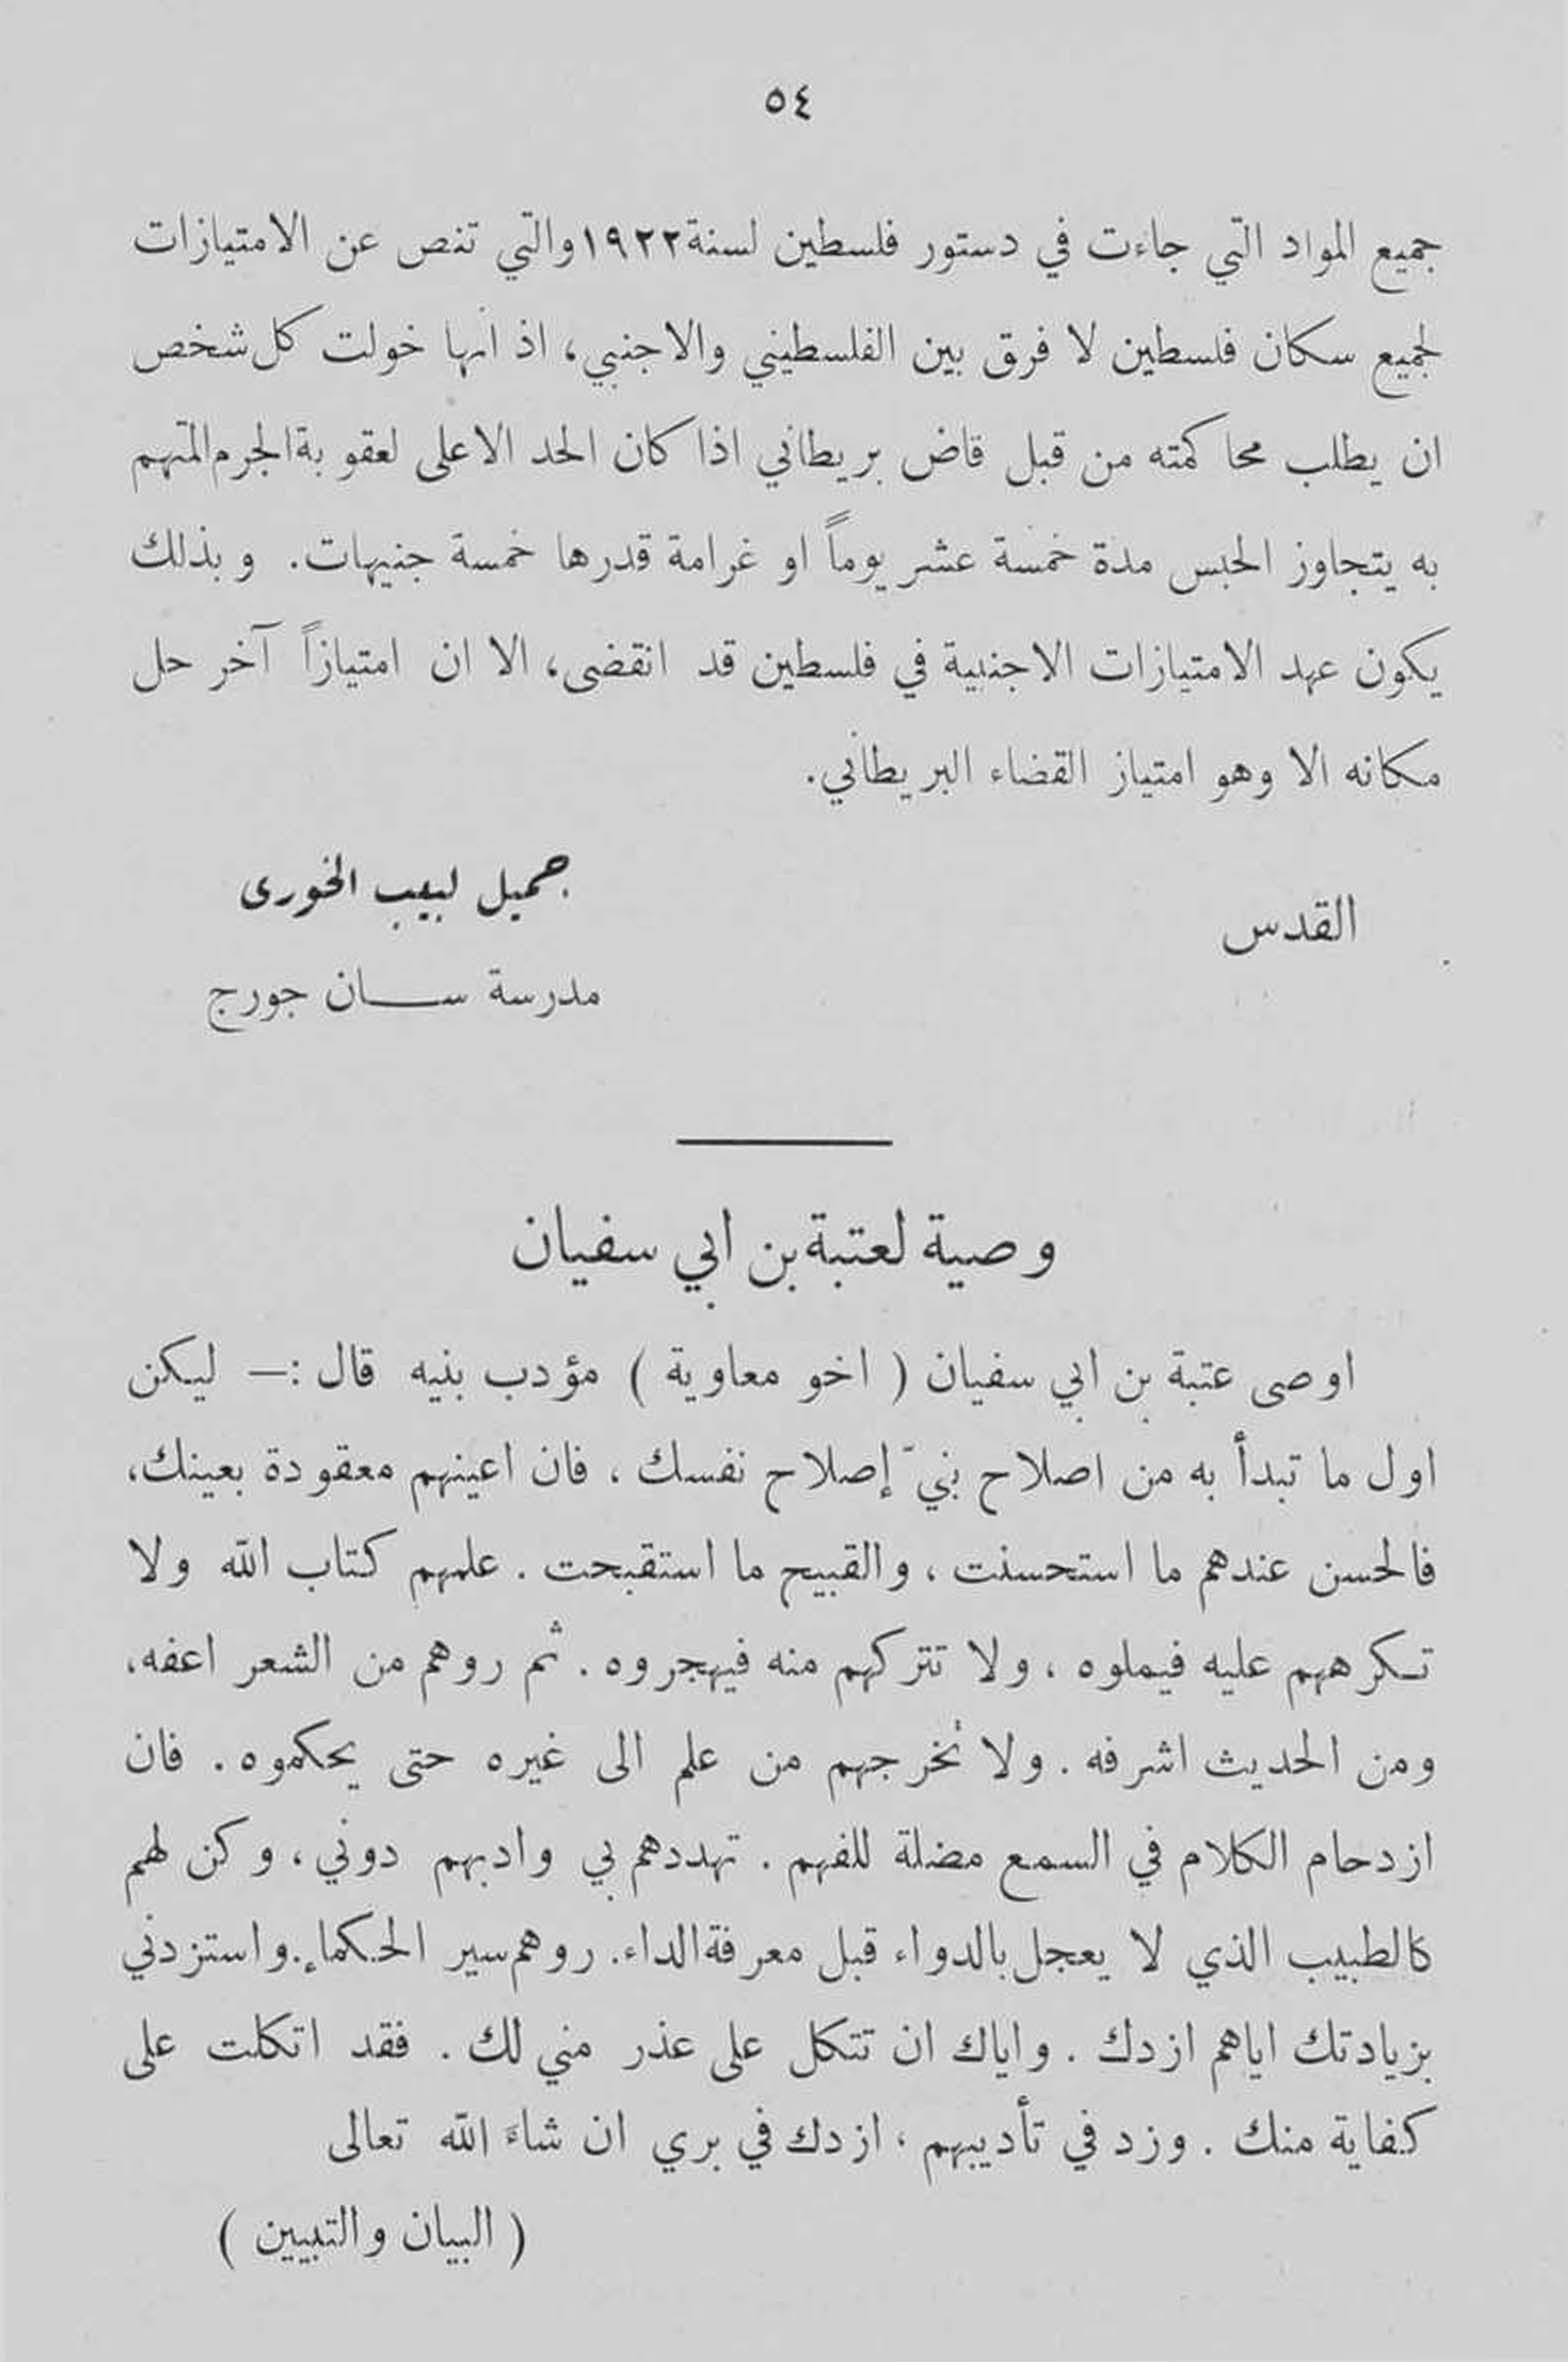 ٥٤
جميع المواد التي جاءت في دستور فلسطين لسنة ١٩٢٢ والتي تنص عن الامتيازات
لجميع سكان فلسطين لا فرق بين الفلسطيني والاجنبي، اذ انها خولت كل شخص
ان يطلب محاكمته من قبل قاض بريطاني اذا كان الحد الاعلى لعقوبة الجرم المتهم
به يتجاوز الحبس مدة خمسة عشر يوماً او غرامة قدرها خمسة جنيهات. وبذلك
يكون عهد الامتيازات الاجنبية في فلسطين قد انقضى، الا ان امتيازاً آخر حل
مكانه الا وهو امتياز القضاء البريطاني.
جميل لبيب الخورى
القدس
مدرسة سـان جورج
وصية لعتبة بن ابي سفيان
اوصى عتبة بن ابي سفيان ( اخو معاوية ) مؤدب بنيه قال :— ليكن
اول ما تبدأ به من اصلاح بنيّ إصلاح نفسك ، فان اعينهم معقودة بعينك،
فالحسن عندهم ما استحسنت ، والقبيح ما استقبحت . علمهم كتاب الله ولا
تـكرههم عليه فيملوه ، ولا تتركهم منه فيهجروه . ثم روهم من الشعر اعفه،
ومن الحديث اشرفه . ولا تُخرجهم من علم الى غيره حتى يحكموه . فان
ازدحام الكلام في السمع مضلة للفهم . تهددهم بي وادبهم دوني ، وكن لهم
كالطبيب الذي لا يعجل بالدواء قبل معرفة الداء. روهم سير الحكماءِ. واستزدني
بزيادتك اياهم ازدك . واياك ان تتكل على عذر مني لك . فقد اتكلت على
كفاية منك . وزد في تأديبهم ، ازدك في بري ان شاءَ الله تعالى
( البيان والتبيين )